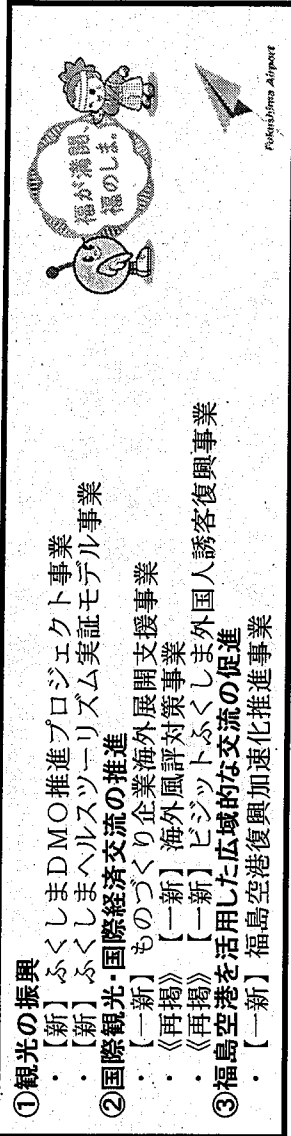 ①観光の振興
・【新】ふくしまDMO推進プロジェクト事業
・【新】ふくしまヘルスツーリズム実証モデル事業
②国際観光・国際経済交流の推進
・【一新】ものづくり企業海外展開支援事業
・《再掲》【一新】海外風評対策事業
・《再掲》【一新】ビジットふくしま外国人誘客復興事業
③福島空港を活用した広域的な交流の促進
・【一新】福島空港復興加速化推進事業
福が満開、
福のしま。
Fukushima Airport